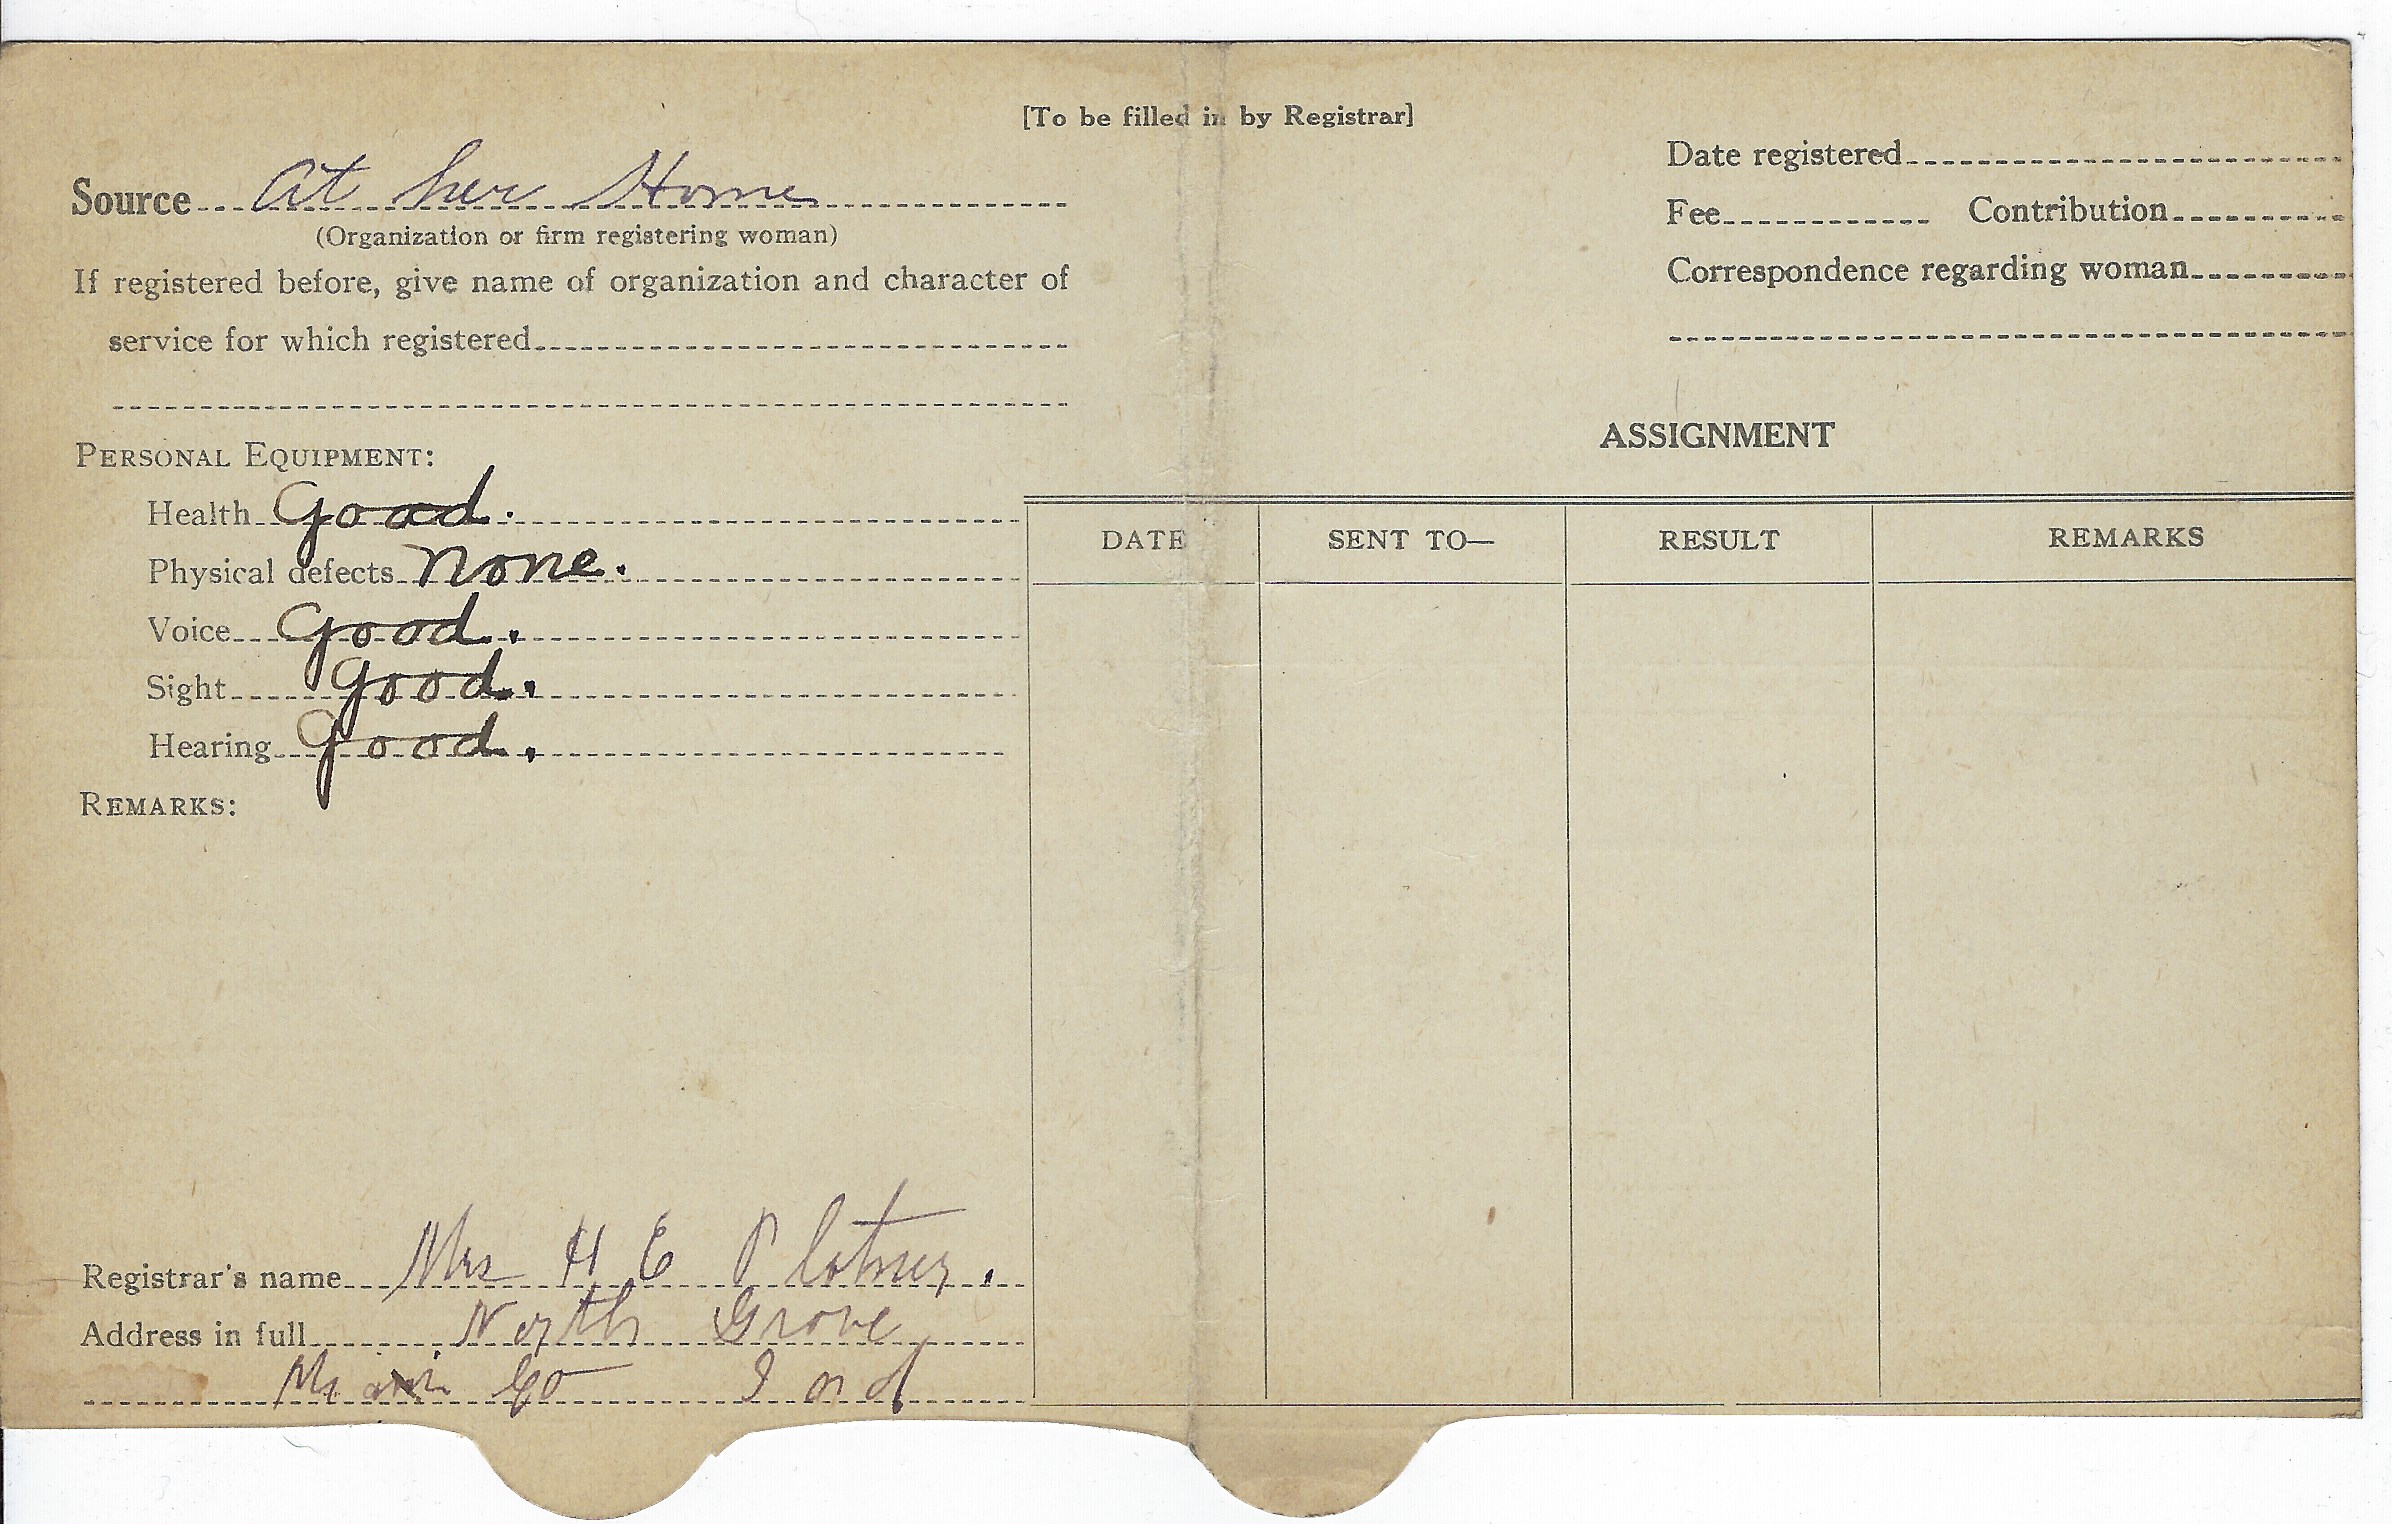 [To be filled in by Registrar]
Source At her Home
(Organization or firm registering woman)
If registered before, give name of organization and character of
service for which registered
PERSONAL EQUIPMENT:
Health Good.
Physical defects None.
Voice Good.
Sight Good.
Hearing Good.
REMARKS:
Registrar's name Mrs H E
Address in full North Grove
Miami Co Ind
Date registered
Fee Contribution
Correspondence regarding woman
ASSIGNMENT
DATE SENT TO— RESULT REMARKS